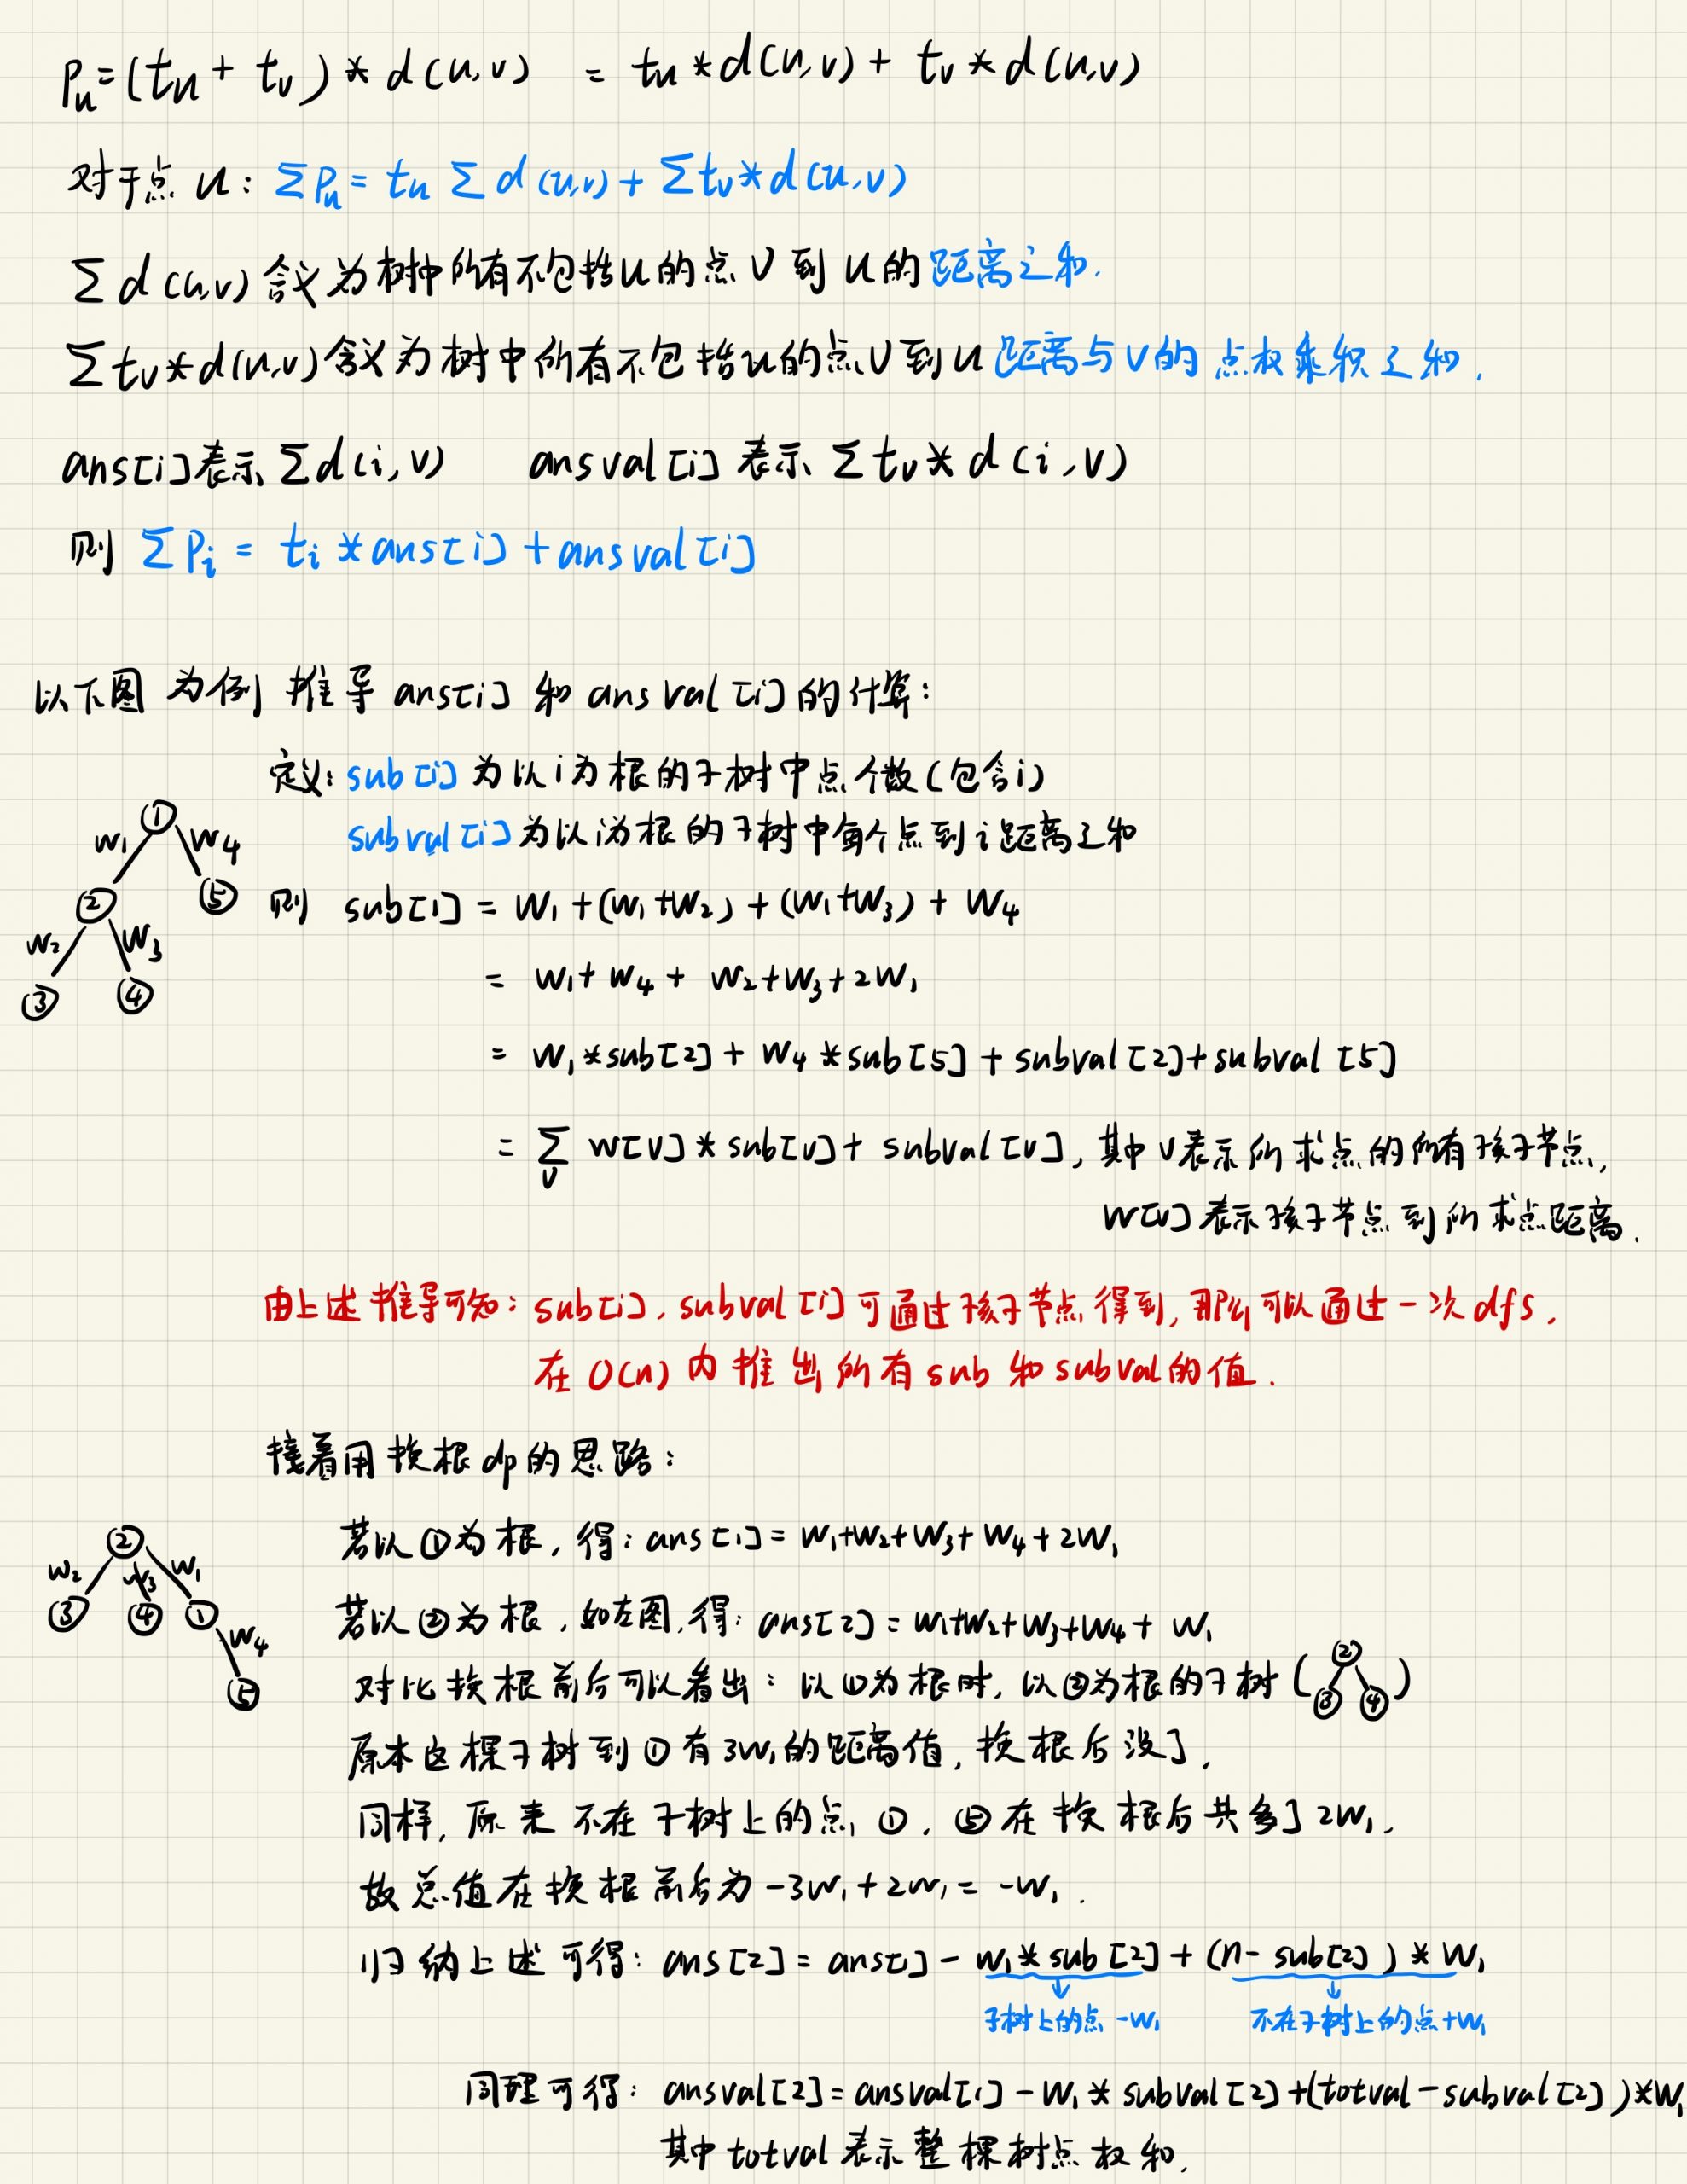 Pu=(tu+tv)*d(u,v) = tu*d(u,v)+tv*d(u,v)
对于点u:ΣPu=tuΣd(u,v)+Σtv*d(u,v)
Σd(u,v)含义为树中所有不包括u的点v到u的距离之和.
Σtv*d(u,v)含义为树中所有不包括u的点v到u距离与v的点权乘积之和.
ans[i]表示Σd(i,v) ansval[i]表示Σtv*d(i,v)
则ΣPi=ti*ans[i]+ansval[i]
以下图为例推导ans[i]和ansval[i]的计算:
定义:sub[i]为以i为根的子树中点个数(包含i)
subval[i]为以i为根的子树中每个点到i距离之和
① w1 w4 ② ⑤ w2 w3 ③ ④
则 sub[1]=w1+(w1+w2)+(w1+w3)+w4
=w1+w4+w2+w3+2w1
=w1*sub[2]+w4*sub[5]+subval[2]+subval[5]
=Σv w[v]*sub[v]+subval[v],其中v表示所求点的所有孩子节点,
w[v]表示孩子节点到所求点距离.
由上述推导可知:sub[i],subval[i]可通过孩子节点得到,那么可以通过一次dfs,
在O(n)内推出所有sub和subval的值.
接着用换根dp的思路:
② w2 w3 w1 ③ ④ ① w4 ⑤
若以①为根,得:ans[1]=w1+w2+w3+w4+2w1
若以②为根,如左图,得:ans[2]=w1+w2+w3+w4+w1
对比换根前后可以看出:以①为根时,以②为根的子树(② ③ ④)
原本这棵子树到①有3w1的距离值,换根后没了,
同样,原来不在子树上的点①,⑤在换根后共多了2w1,
故总值在换根前后为-3w1+2w1=-w1.
归纳上述可得:ans[2]=ans[1]-w1*sub[2]+(n-sub[2])*w1
子树上的点-w1 不在子树上的点+w1
同理可得:ansval[2]=ansval[1]-w1*subval[2]+(totval-subval[2])*w1
其中totval表示整棵树点权和.